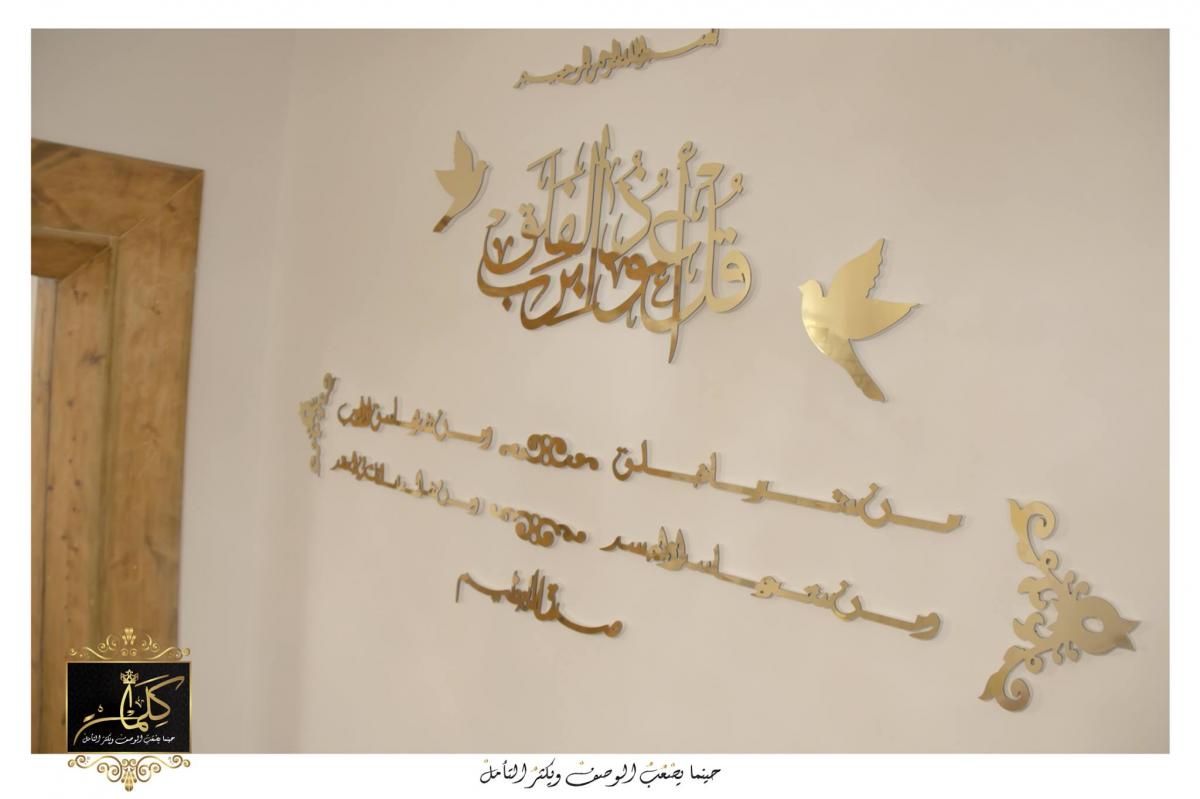 بسم الله الرحمن الرحيم
قُل أعُوذُ برَبِّ الفَلَقِ
من شر ما خلق ومن شر غاسق إذا وقب
ومن شر حاسد إذا حسد ومن شر النفاثات في العقد
صدق الله العظيم
كَلِمات
حينما يصْعُبُ الوصفْ ويكثرْ التأملْ
حينما يصْعُبُ الوصفْ ويكثرْ التأملْ